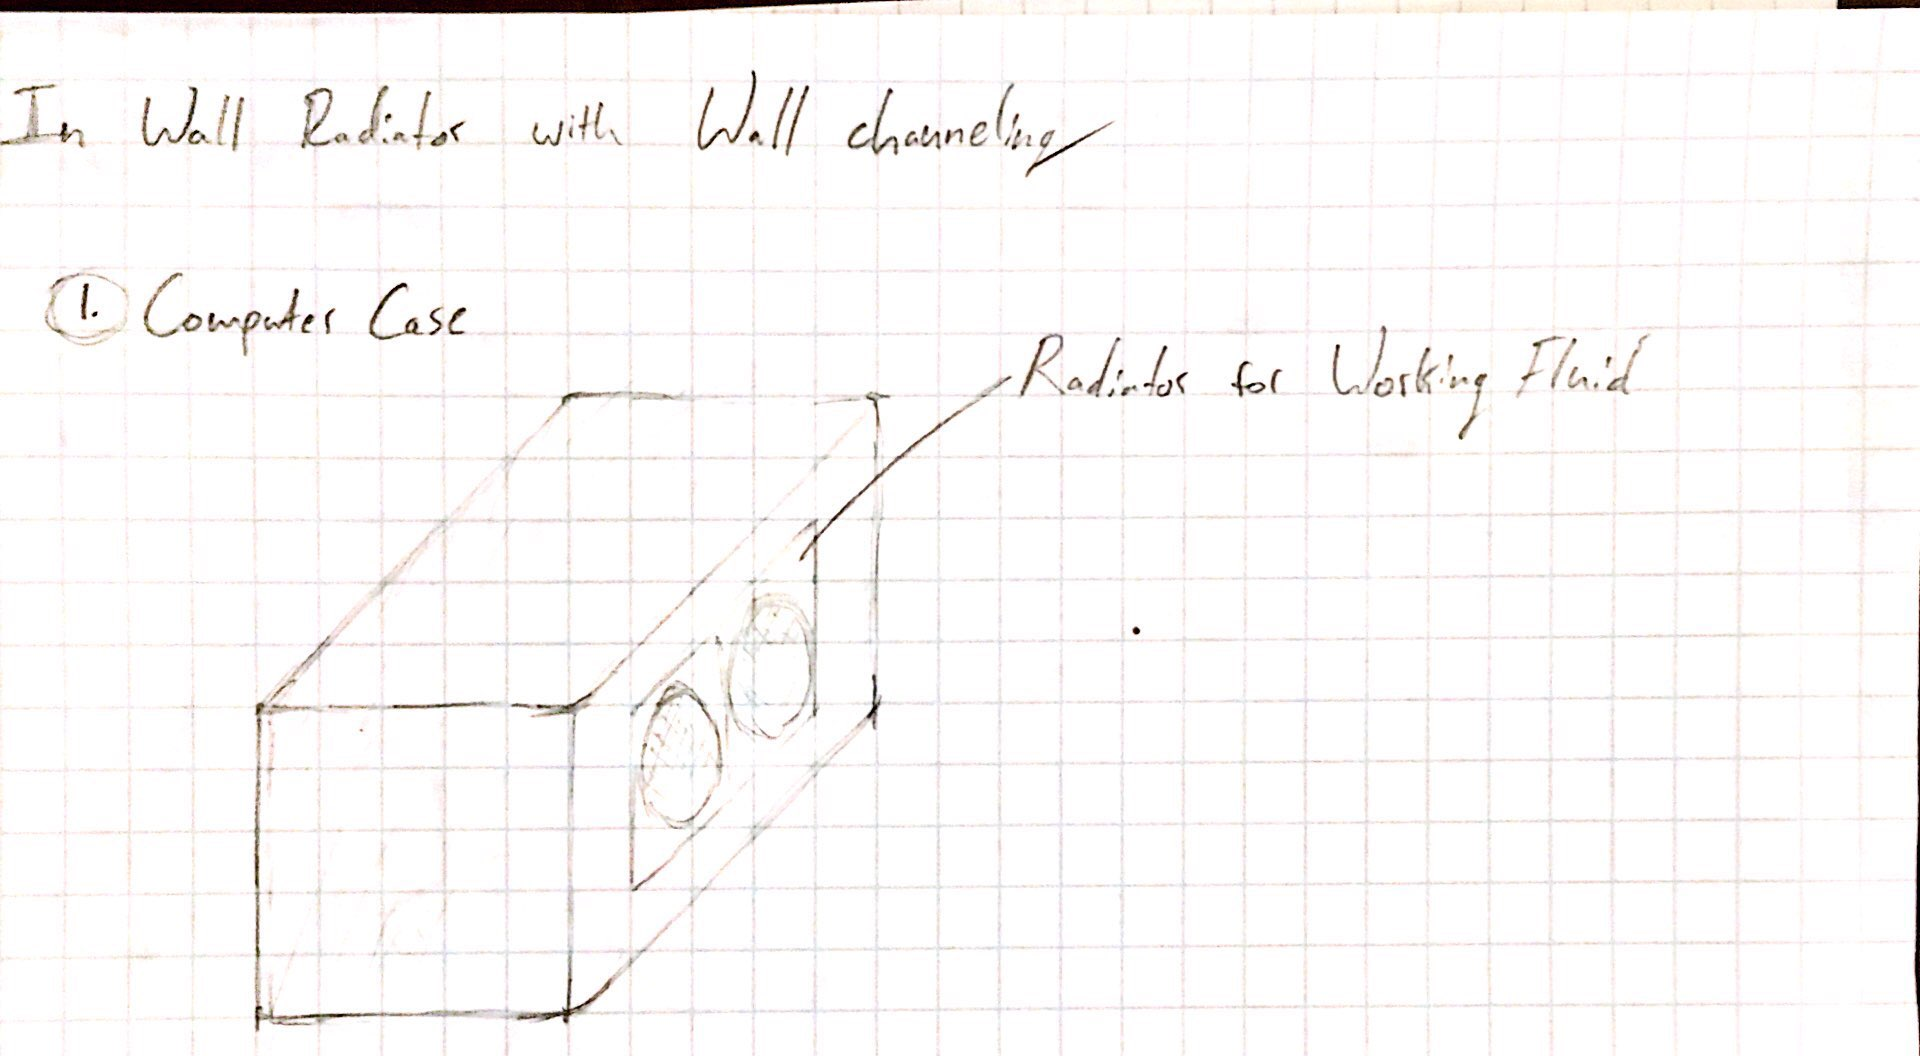 In Wall Radiator with Wall channeling
1. Computer Case
Radiator for Working Fluid